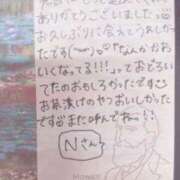 ありがとうございました
お久しぶりに会えてうれしかっ
たです なんかかわ
いくなってる!!!ょっておどろい
てたのおもしろかったですこ
お茶漬けのやつおいしかった
です また呼んでね。
Nさん